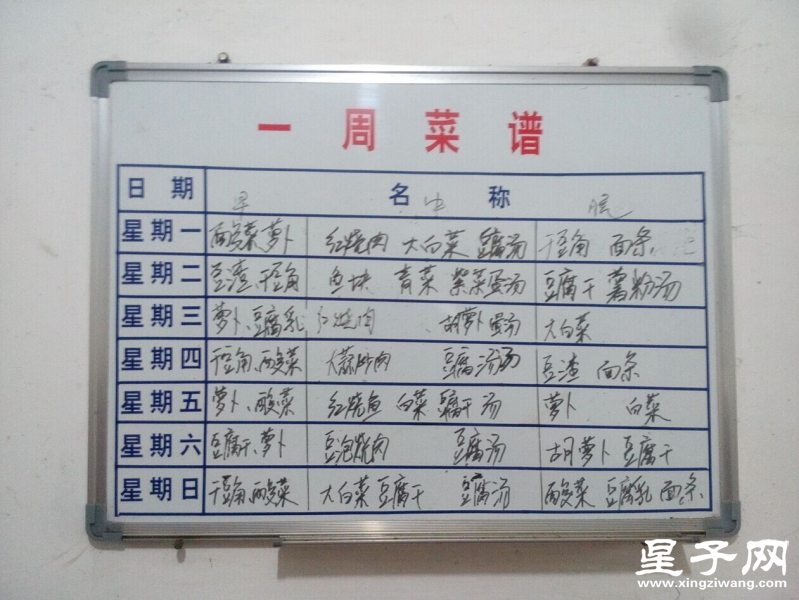 一周菜谱
日期 名称
早 中 晚
星期一 酸菜萝卜 红烧肉 大白菜 豆腐汤 干豆角 面条
星期二 豆渣、干豆角 鱼块 青菜 紫菜蛋汤 豆腐干 薯粉汤
星期三 萝卜、豆腐乳 红烧肉 胡萝卜 蛋汤 大白菜
星期四 干豆角、酸菜 大蒜炒肉 豆腐汤 豆渣 面条
星期五 萝卜、酸菜 红烧鱼 白菜 豆腐干汤 萝卜 白菜
星期六 豆腐干、萝卜 豆泡烧肉 豆腐汤 胡萝卜 豆腐干
星期日 干豆角、酸菜 大白菜 豆腐干 豆腐汤 酸菜 豆腐乳 面条
星子网
www.xingziwang.com